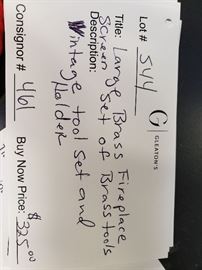 Lot # 544
G
GLEATON'S
Title: Large Brass Fireplace
Screen Set of Brass tools
Description:
Vintage tool set and
Holder
Consignor # 461
Buy Now Price: $325.00